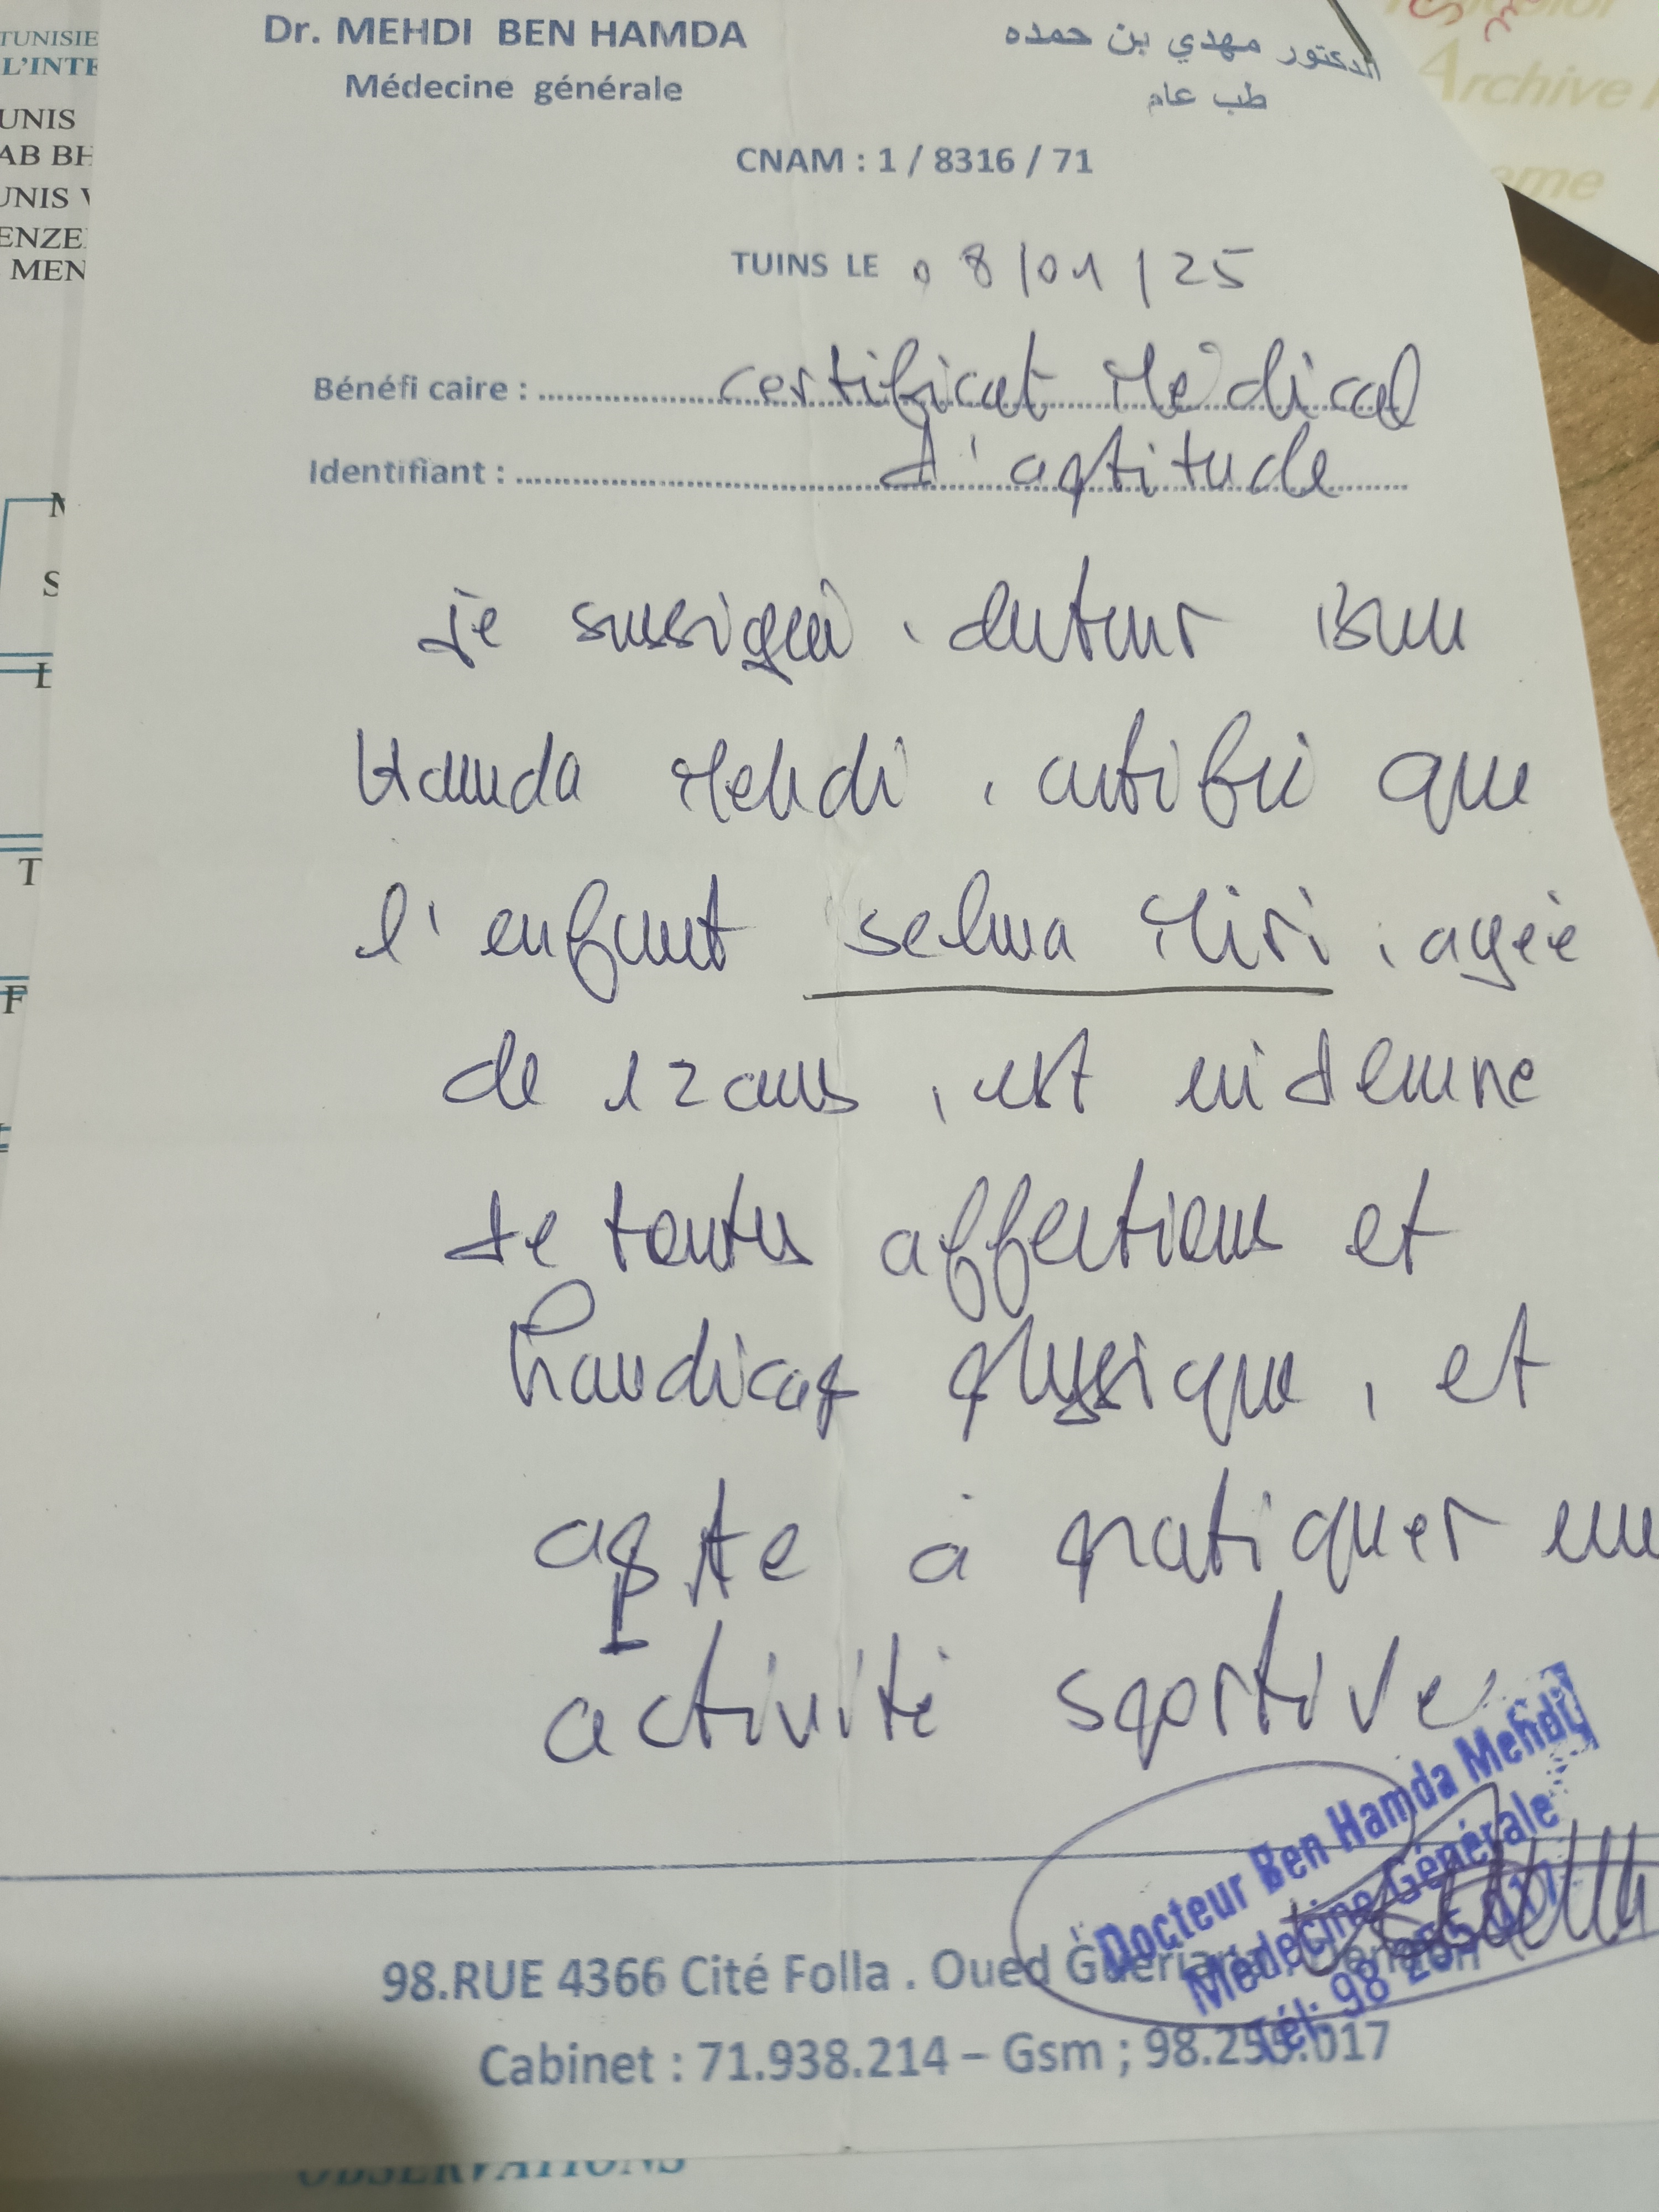 TUNISIE
L'INTE
UNIS
AB BH
UNIS V
ENZE
MEN
Archive
eme
Dr. MEHDI BEN HAMDA
Médecine générale
الدكتور مهدي بن حمده
طب عام
CNAM : 1 / 8316 / 71
TUINS LE 08/01/25
Bénéfi caire : certificat Médical
Identifiant : d'aptitude
je sussigné, docteur Ben
Hamda Mehdi, certifie que
l'enfant Selma Miri, agée
de 12 ans, est indemne
de toutes affections et
handicap physique, et
apte à pratiquer une
activité sportive.
Docteur Ben Hamda Mehdi
Médecine Générale
Tél: 98 255 017
98.RUE 4366 Cité Folla . Oued Gueriana
Cabinet : 71.938.214 – Gsm ; 98.255.017
OBSERVATIONS